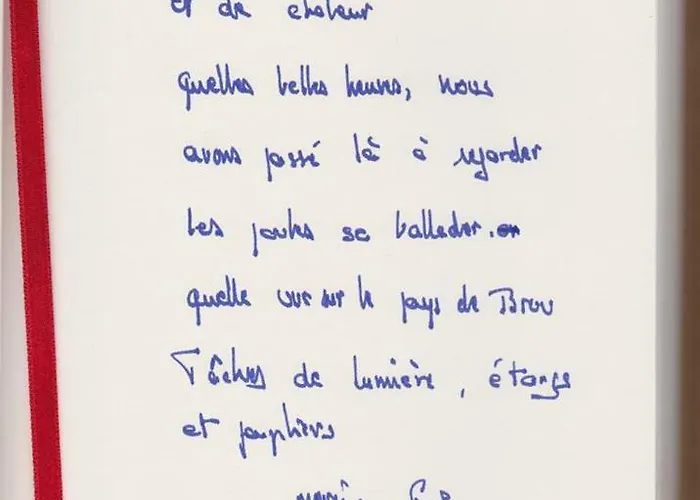 et de chaleur
quelles belles heures, nous
avons passé là à regarder
les poules se ballader.
quelle vue sur le pays de Brou
Tâches de lumière, étangs
et peupliers